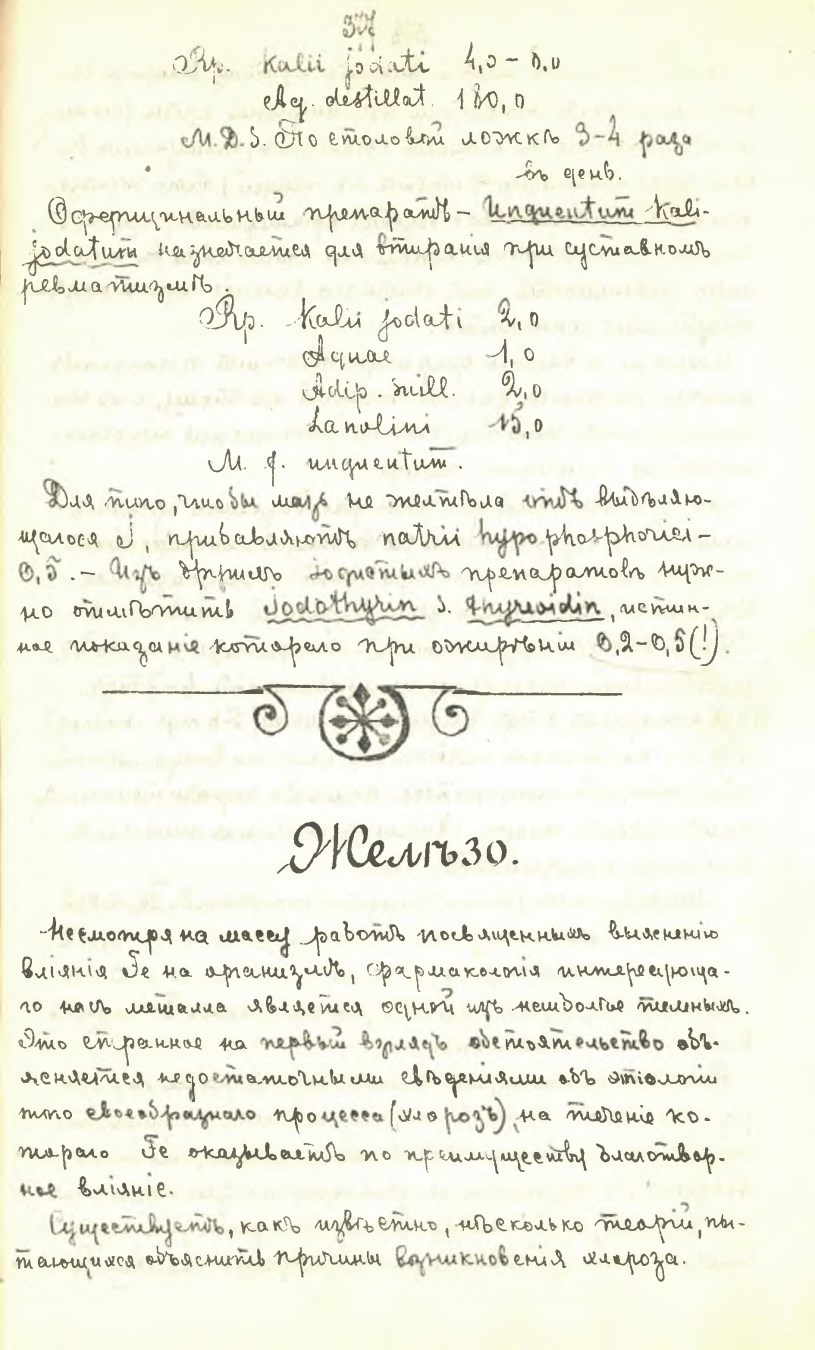 37
Rp. Kalii jodati 4,0 – 8,0
Aq. destillat. 180,0
M.D.S. По столовой ложкѣ 3-4 раза
въ день.
Оффицинальный препаратъ – Unguentum Kali-
jodatum назначается для втиранія при суставномъ
ревматизмѣ.
Rp. Kalii jodati 2,0
Aquae 1,0
Adip. suill. 2,0
Lanolini 15,0
M. f. unguentum.
Для того, чтобы мазь не желтѣла отъ выдѣляю-
щагося J, прибавляютъ natrii hypophosphorici –
0,5. – Изъ другихъ іодистыхъ препаратовъ нуж-
но отмѣтить Jodothyrin s. thyreoidin, истин-
ное показаніе котораго при ожирѣніи 0,2-0,5(!).
Желѣзо.
Несмотря на массу работъ посвященныхъ выясненію
вліянія Fe на организмъ, фармакологія интересующа-
го насъ металла является одной изъ наиболѣе темныхъ.
Это странное на первый взглядъ обстоятельство объ-
ясняется недостаточными свѣдѣніями объ этіологіи
того своеобразнаго процесса (хлорозъ), на теченіе ко-
тораго Fe оказываетъ по преимуществу благотвор-
ное вліяніе.
Существуетъ, какъ извѣстно, нѣсколько теорій, пы-
тающихся объяснить причины возникновенія хлороза.